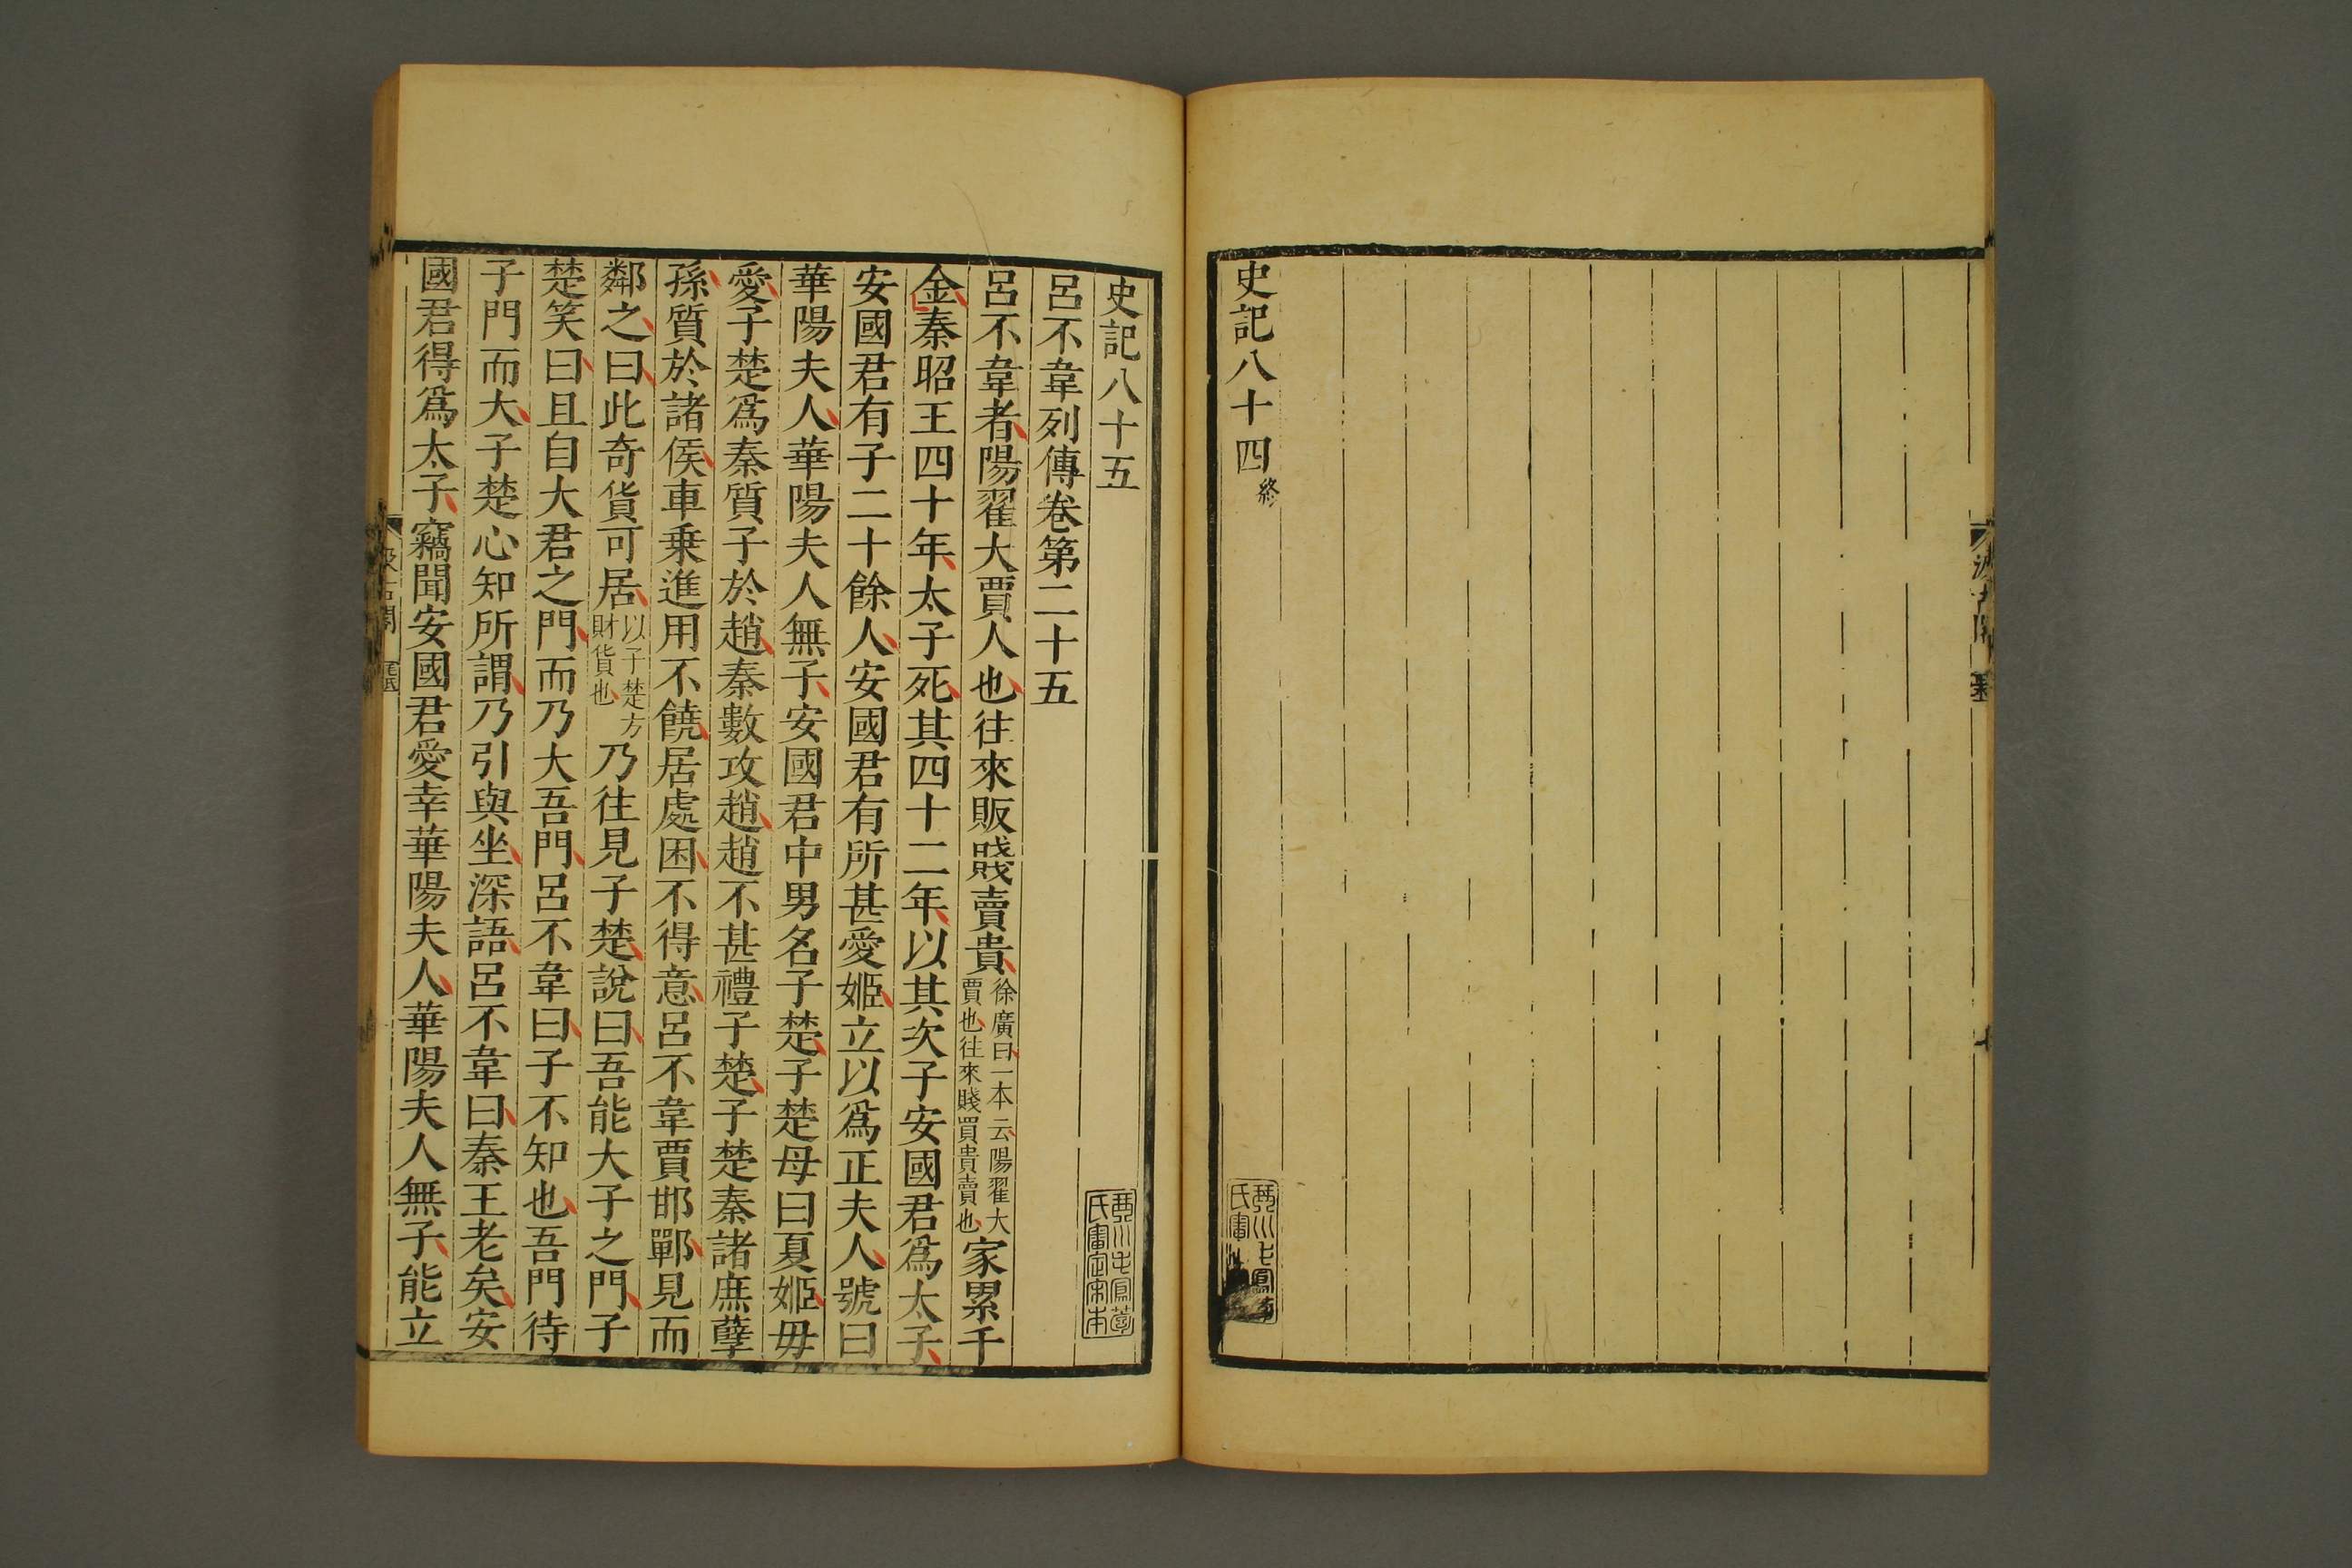 史記八十四終
史記八十五
呂不韋列傳卷第二十五
呂不韋者陽翟大賈人也往來販賤賣貴徐廣曰一本云陽翟大賈也往來賤買貴賣也家累千
金秦昭王四十年太子死其四十二年以其次子安國君爲太子
安國君有子二十餘人安國君有所甚愛姬立以爲正夫人號曰
華陽夫人華陽夫人無子安國君中男名子楚子楚母曰夏姬毋
愛子楚爲秦質子於趙秦數攻趙趙不甚禮子楚子楚秦諸庶孽
孫質於諸侯車乗進用不饒居處困不得意呂不韋賈邯鄲見而
鄰之曰此奇貨可居以子楚方財貨也乃往見子楚說曰吾能大子之門子
楚笑曰且自大君之門而乃大吾門呂不韋曰子不知也吾門待
子門而大子楚心知所謂乃引與坐深語呂不韋曰秦王老矣安
國君得爲太子竊聞安國君愛幸華陽夫人華陽夫人無子能立